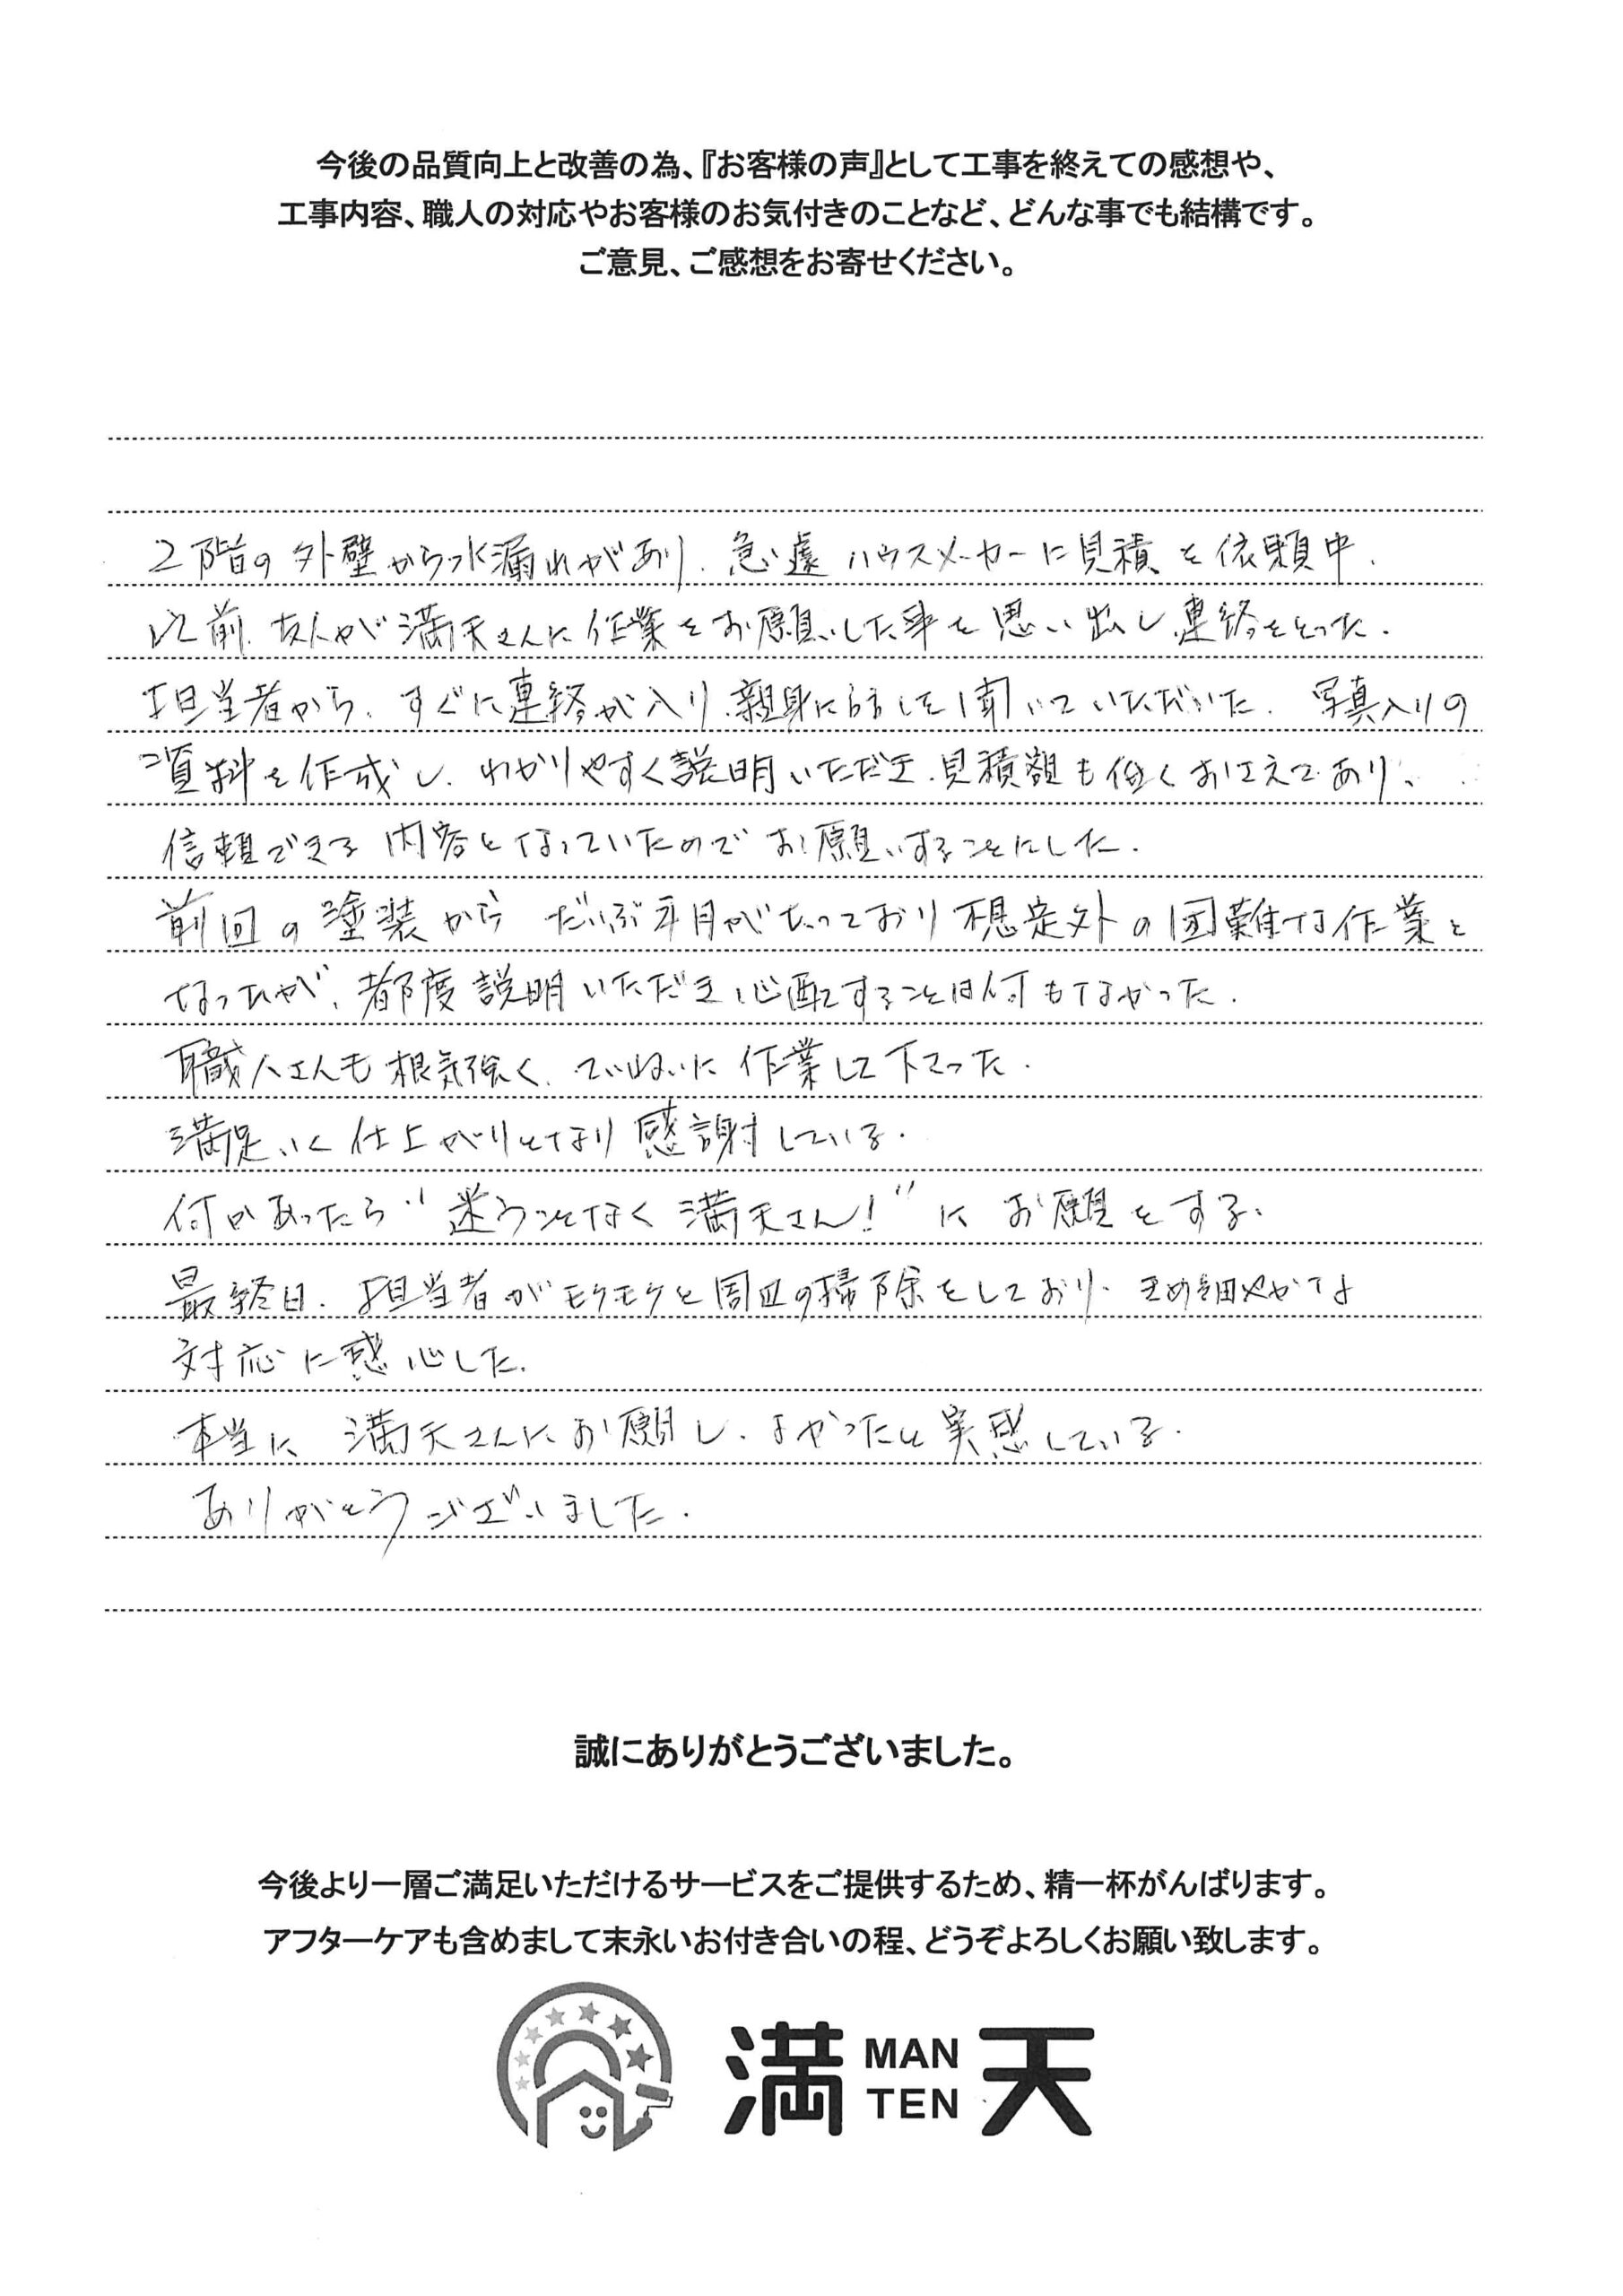 今後の品質向上と改善の為、『お客様の声』として工事を終えての感想や、
工事内容、職人の対応やお客様のお気付きのことなど、どんな事でも結構です。
ご意見、ご感想をお寄せください。
2階の外壁から水漏れがあり、急遽ハウスメーカーに見積を依頼中、
以前、友人が満天さんに作業をお願いした事を思い出し連絡をとった。
担当者から、すぐに連絡が入り、親身に話しを聞いていただいた。写真入りの
資料を作成し、わかりやすく説明いただき、見積額も低くおさえてあり、
信頼できる内容となっていたのでお願いすることにした。
前回の塗装からだいぶ年月がたっており想定外の困難な作業と
なったが、都度説明いただき心配することは何もなかった。
職人さんも根気強く、ていねいに作業して下さった。
満足いく仕上がりとなり感謝している。
何かあったら“迷うことなく満天さん!”にお願をする。
最終日、担当者がモクモクと周辺の掃除をしており、きめ細やかな
対応に感心した。
本当に満天さんにお願し、よかったと実感している。
ありがとうございました。
誠にありがとうございました。
今後より一層ご満足いただけるサービスをご提供するため、精一杯がんばります。
アフターケアも含めまして末永いお付き合いの程、どうぞよろしくお願い致します。
満 MAN TEN 天